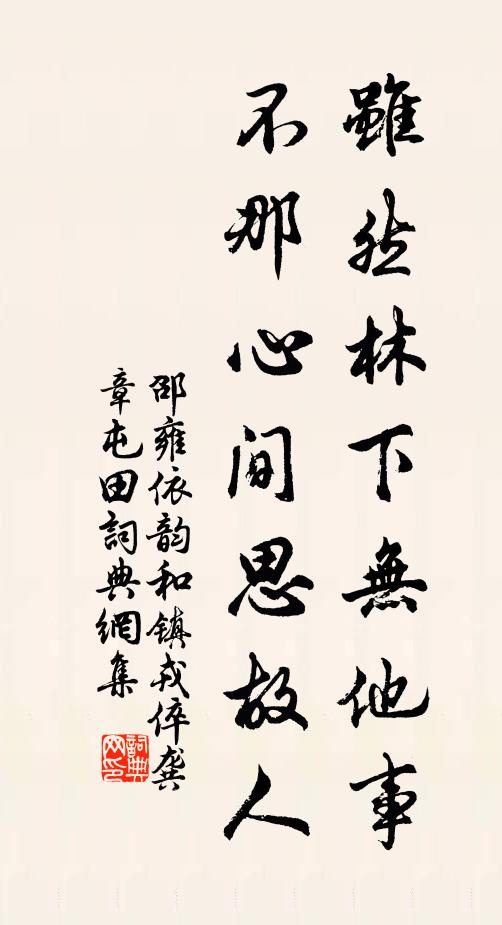 雖然林下無他事
不那心間思故人
邵雍依韵和镇戎倅龚
章屯田詞典網集
詞典
网印